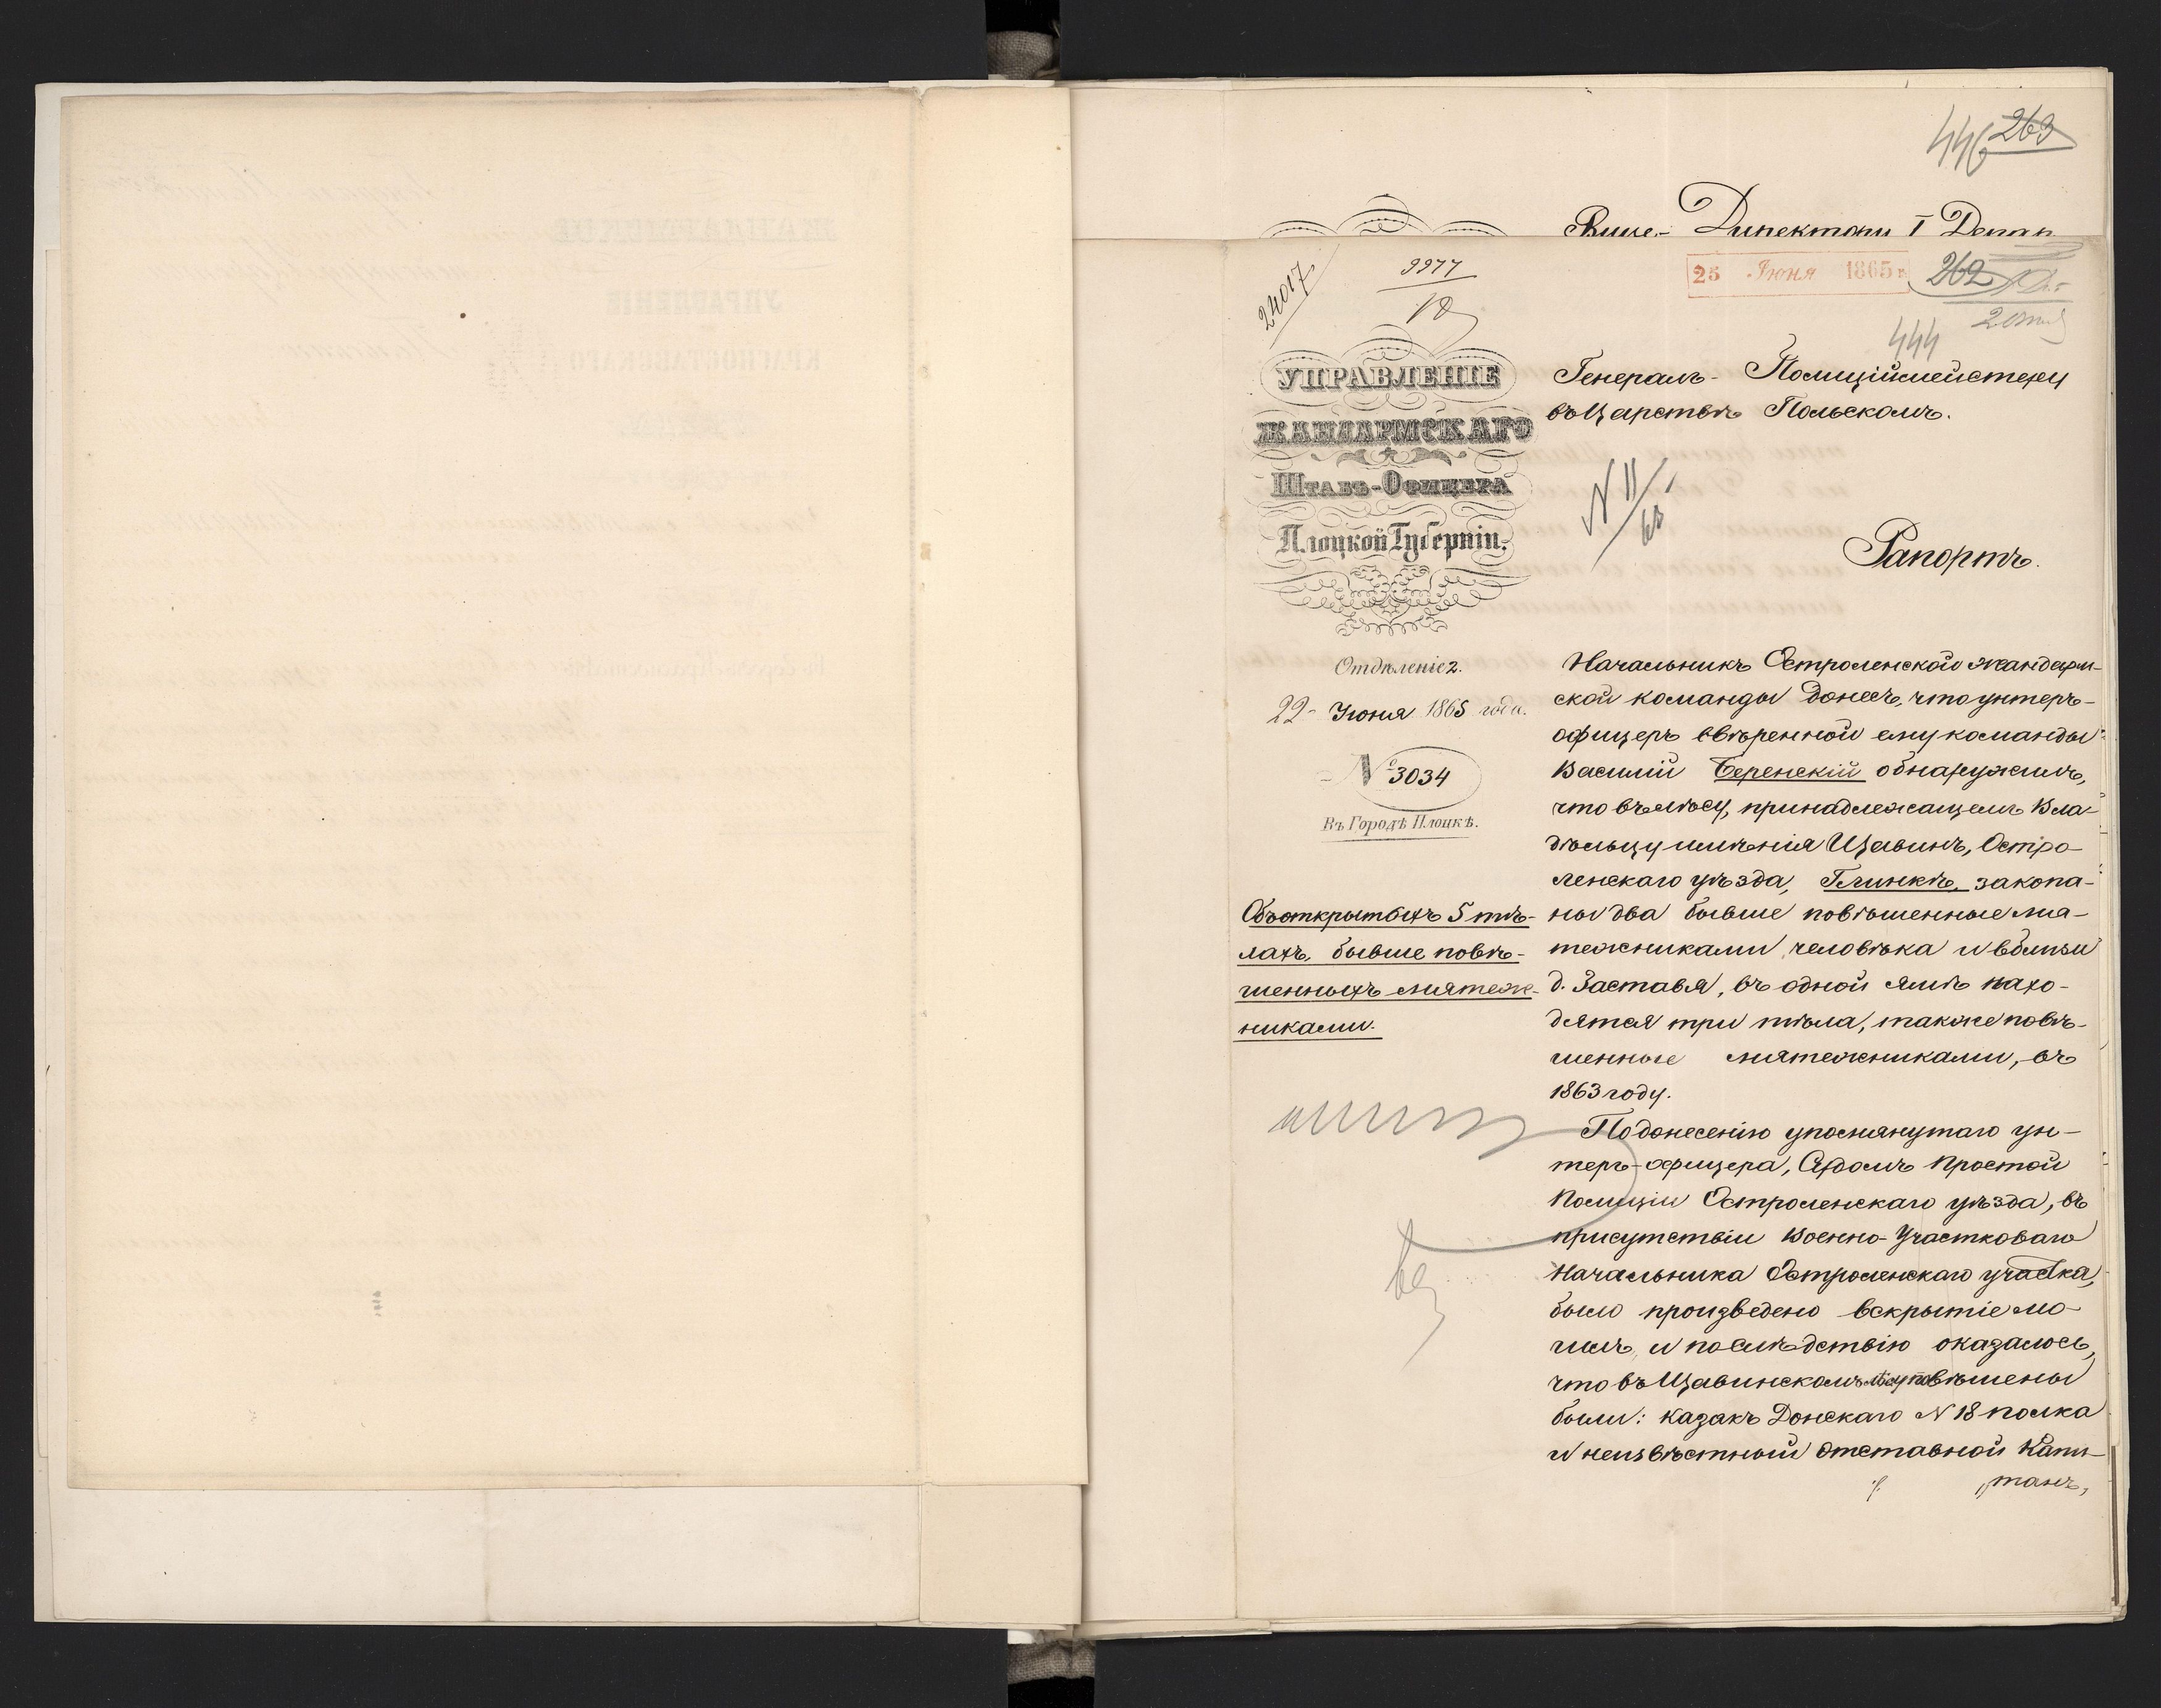 446 263
Вице-Директору I Депар
24017
9977
25 Іюня 1865 г.
262
444
УПРАВЛЕНІЕ
ЖАНДАРМСКАГО
ШТАБЪ-ОФИЦЕРА
Плоцкой Губерніи.
Отдѣленіе 2.
22 Іюня 1865 года.
№ 3034
Въ Городѣ Плоцкѣ.
Объ открытыхъ 5 тѣ-
лахъ, бывше повѣ-
шенныхъ мятеж-
никами.
Генералъ-Полиціймейстеру
въ Царствѣ Польскомъ.
Рапортъ.
Начальникъ Остроленской жандарм-
ской команды донесъ, что унтеръ-
офицеръ ввѣренной ему команды
Василій Беренскій обнаружилъ,
что въ лѣсу, принадлежащемъ Вла-
дѣльцу имѣнія Щавинъ, Остро-
ленскаго уѣзда, Глинкѣ, закопа-
ны два бывше повѣшенные мя-
тежниками человѣка и вблизи
д. Заставя, въ одной ямѣ нахо-
дятся три тѣла, также повѣ-
шенные мятежниками, въ
1863 году.
По донесенію упомянутаго ун-
теръ-офицера, Судомъ Простой
Полиціи Остроленскаго уѣзда, въ
присутствіи Военно-Участковаго
Начальника Остроленскаго участка,
было произведено вскрытіе мо-
гилъ и послѣдствію оказалось,
что въ Щавинскомъ лѣсу повѣшены
были: казакъ Донскаго N 18 полка
и неизвѣстный отставной Капи-
танъ,